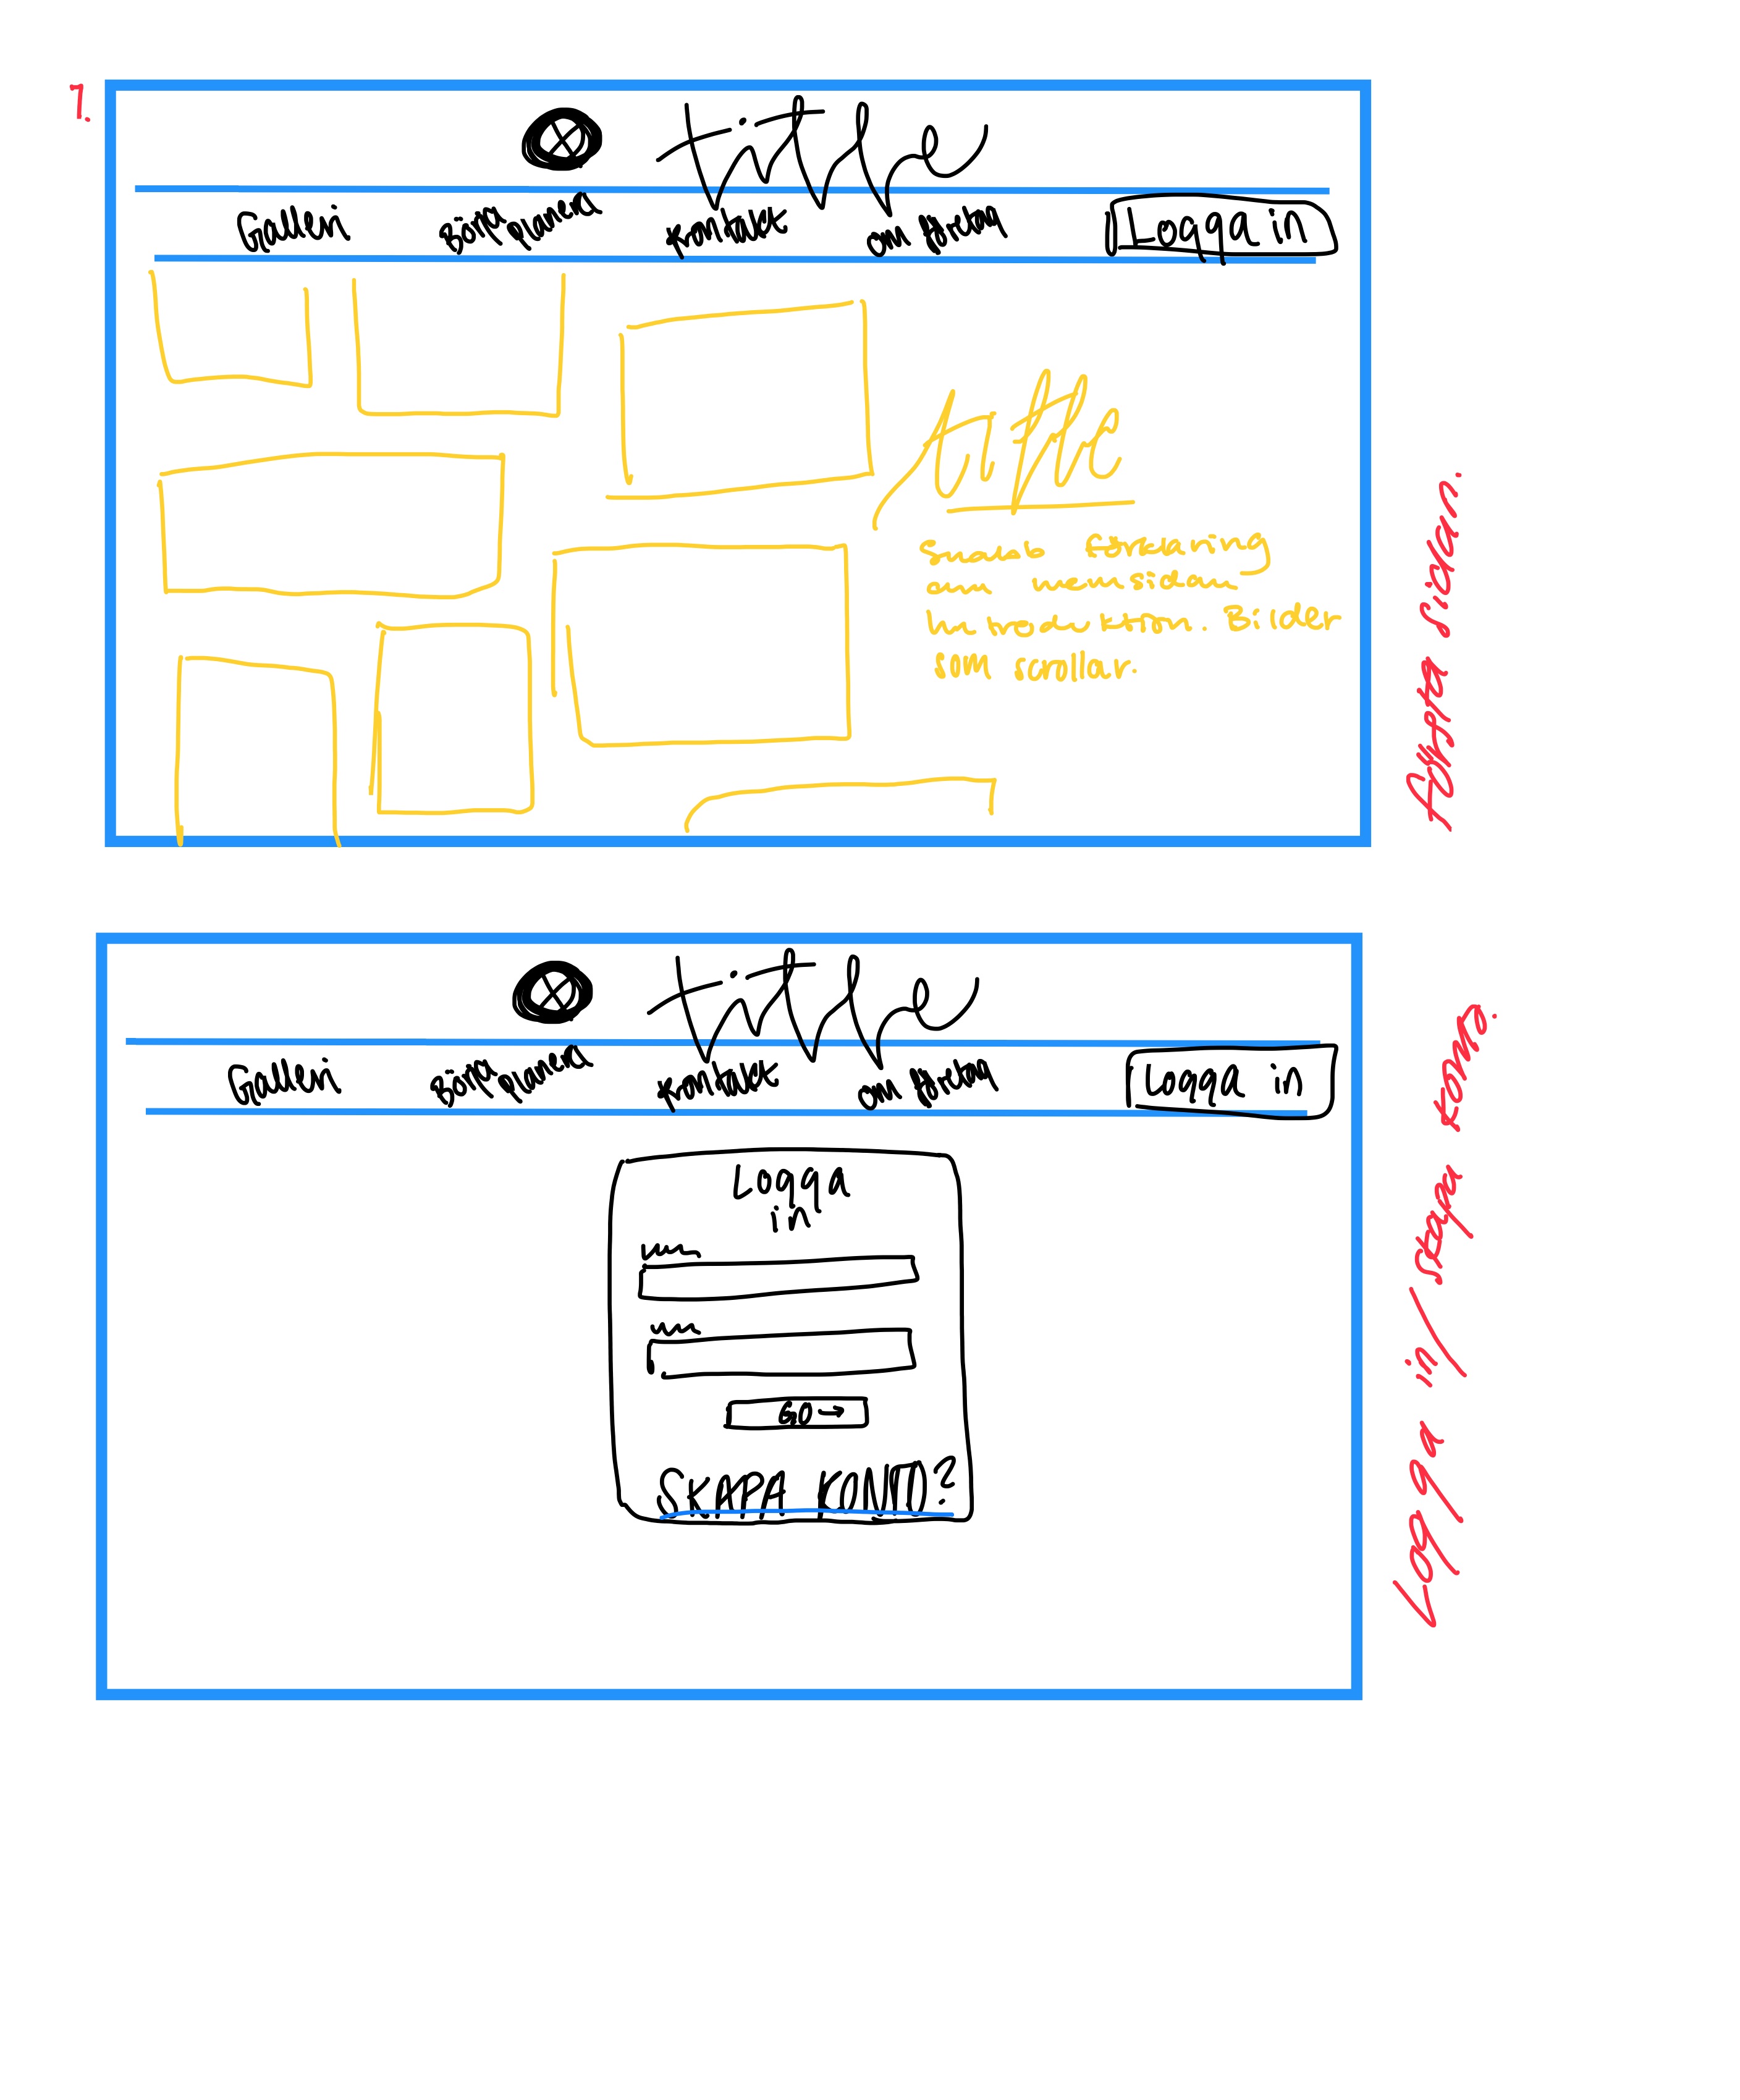 1.
title
Galleri
Söka planer
Kontakt
om företag
Logga in
title
förklaring
om hemsidan
Bilder
som scrollar.
första sidan.
title
Galleri
Söka planer
Kontakt
om företag
Logga in
Logga
in
GO →
SKAPA KONTO?
Logga in/skapa konto.